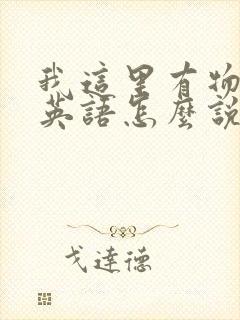 我這里有物
英語怎麼說
戈達德